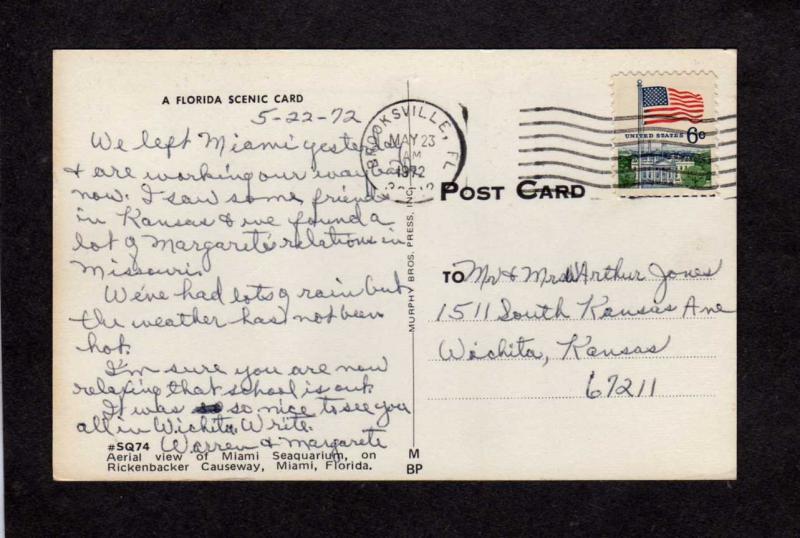 A FLORIDA SCENIC CARD
5-22-72
We left Miami yesterday
& are working our way back
now. I saw some friends
in Kansas & we found a
lot of Margarete's relations in
Missouri.
We've had lots of rain but
the weather has not been
hot.
I'm sure you are now
relaxing that school is out.
It was so nice to see you
all in Wichita. Write.
Warren & Margarete
#SQ74
Aerial view of Miami Seaquarium, on
Rickenbacker Causeway, Miami, Florida.
MURPHY BROS. PRESS, INC.
M
BP
BROOKSVILLE, FL
MAY 23
AM
1972
UNITED STATES 6¢
POST CARD
TO Mr & Mrs Arthur Jones
1511 South Kansas Ave
Wichita, Kansas
67211